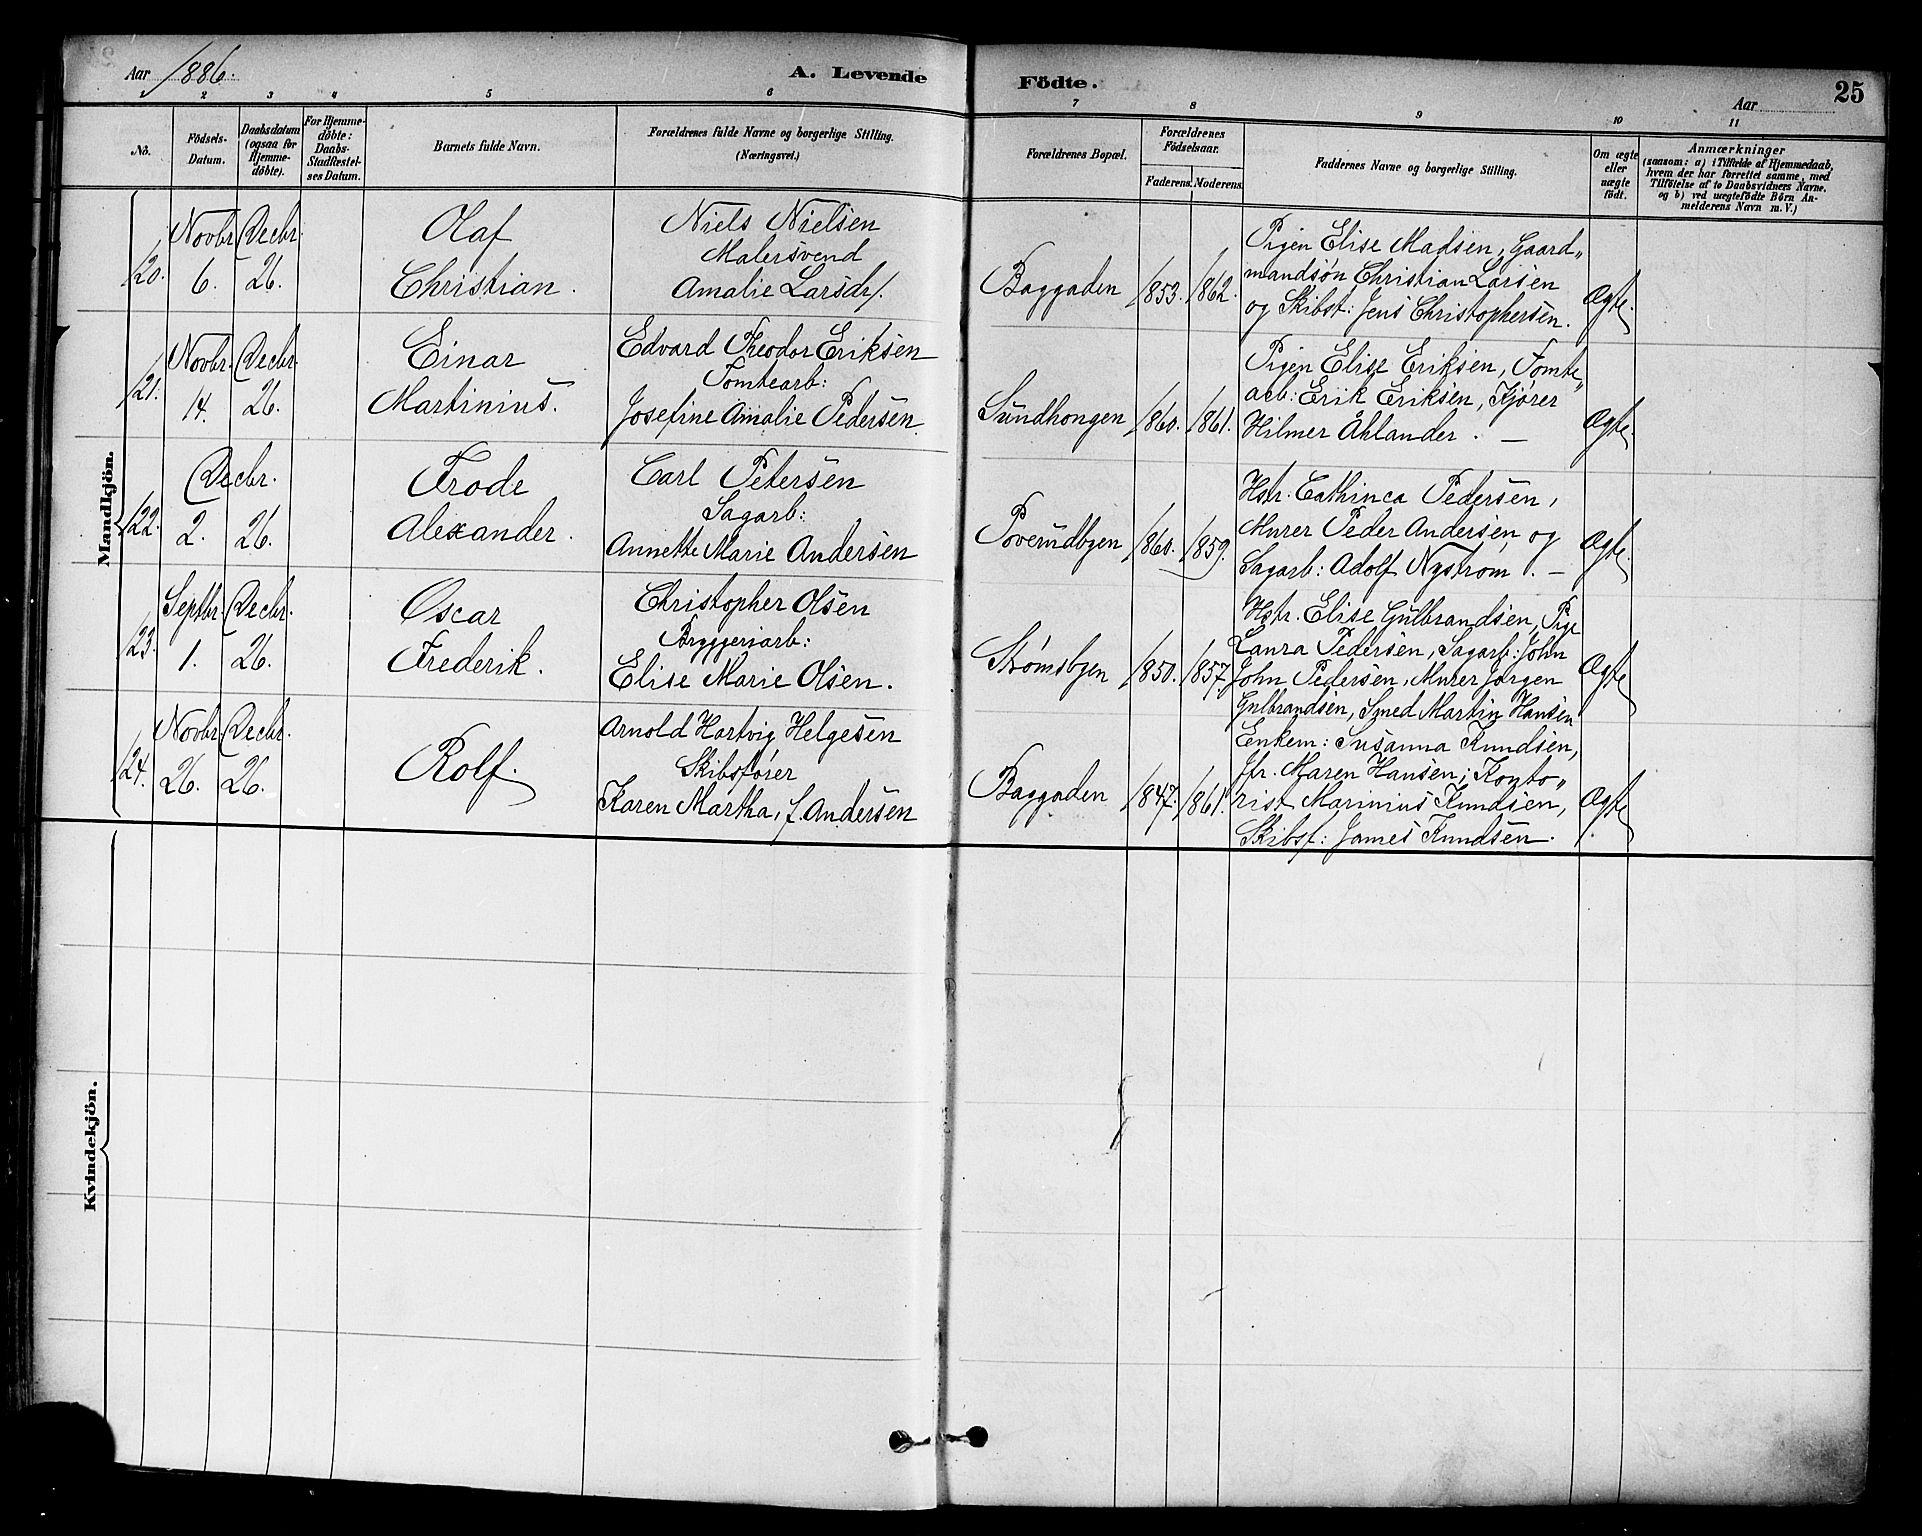 Aar 1886.
A. Levende Födte.
Aar
25
1 2 3 4 5 6 7 8 9 10 11
No.
Födsels-Datum.
Daabsdatum (ogsaa for Hjemme-döbte).
For Hjemme-döbte: Daabs-Stadfæstel-ses Datum.
Barnets fulde Navn.
Forældrenes fulde Navne og borgerlige Stilling.
(Næringsvei.)
Forældrenes Bopæl.
Forældrenes Födselsaar.
Faderens. Moderens.
Faddernes Navne og borgerlige Stilling.
Om ægte eller uægte födt.
Anmærkninger
(saasom: a) i Tilfælde af Hjemmedaab,
hvem der har forrettet samme, med
Tilföielse af to Daabsvidners Navne,
og b) ved uægtefödte Börn An-
melderens Navn m. V.)
Mandkjön.
120.
Novbr. 6.
Decbr. 26.
Olaf
Christian.
Niels Nielsen
Malersvend
Amalie Larsdr.
Baggaden
1853. 1862.
Pigen Elise Madsen, Gaard„
mandsøn Christian Larsen
og Skibst: Jens Christophersen.
Ægte.
121.
Novbr. 14.
Decbr. 26.
Einar
Martinius.
Edvard Theodor Eriksen
Tomtearb:
Josefine Amalie Pedersen.
Sundhougen
1860. 1861.
Pigen Elise Eriksen, Tomte„
arb: Erik Eriksen, Kjører
Hilmer Åhlander. —
Ægte.
122.
Decbr.
2. 26.
Frode
Alexander.
Carl Petersen
Sagarb:
Annette Marie Andersen
Poverudbyen
1860. 1859.
Hstr. Cathinca Pedersen,
Murer Peder Andersen og
Sagarb: Adolf Nystrøm. —
Ægte.
123.
Septbr. 1.
Decbr. 26.
Oscar
Frederik.
Christopher Olsen
Bryggeriarb:
Elise Marie Olsen.
Strømsbyen
1850. 1857.
Hstr. Elise Gulbrandsen, Pige
Laura Pedersen, Sagarb: John
John Pedersen, Murer Jørgen
Gulbrandsen, Smed Martin Hansen
Ægte
124.
Novbr. 26.
Decbr. 26.
Rolf.
Arnold Hartvig Helgesen
Skibsfører
Karen Martha, f. Andersen
Baggaden
1847. 1861.
Enkem: Susanna Knudsen,
Jfr. Maren Hansen, Konto„
rist Marinius Knudsen,
Skibsf: James Knudsen.
Ægte.
Kvindekjön.